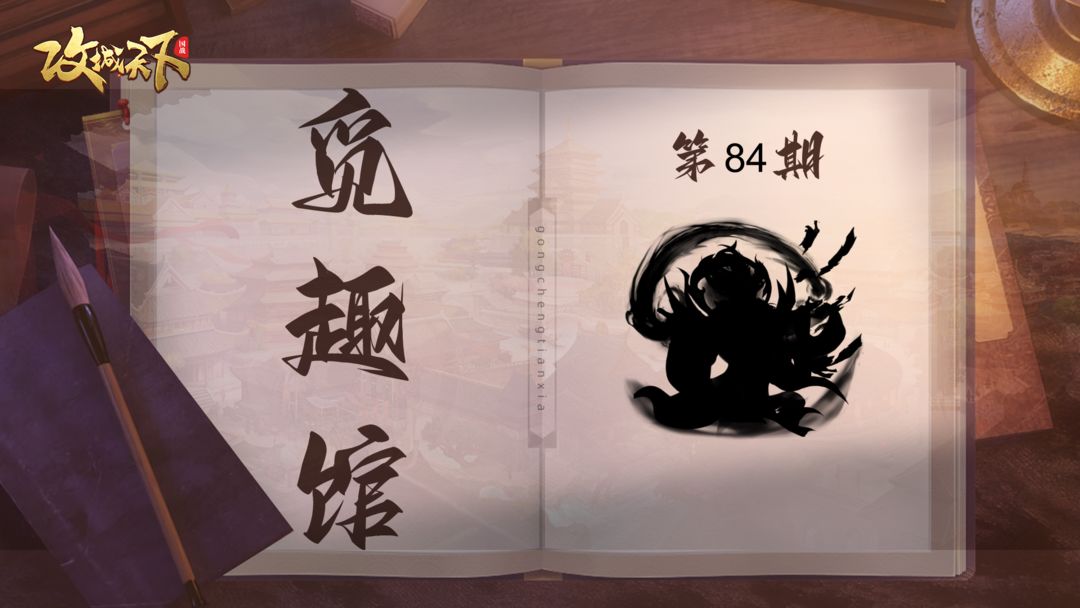 攻城天下
国战
觅趣馆
gongchengtianxia
第84期